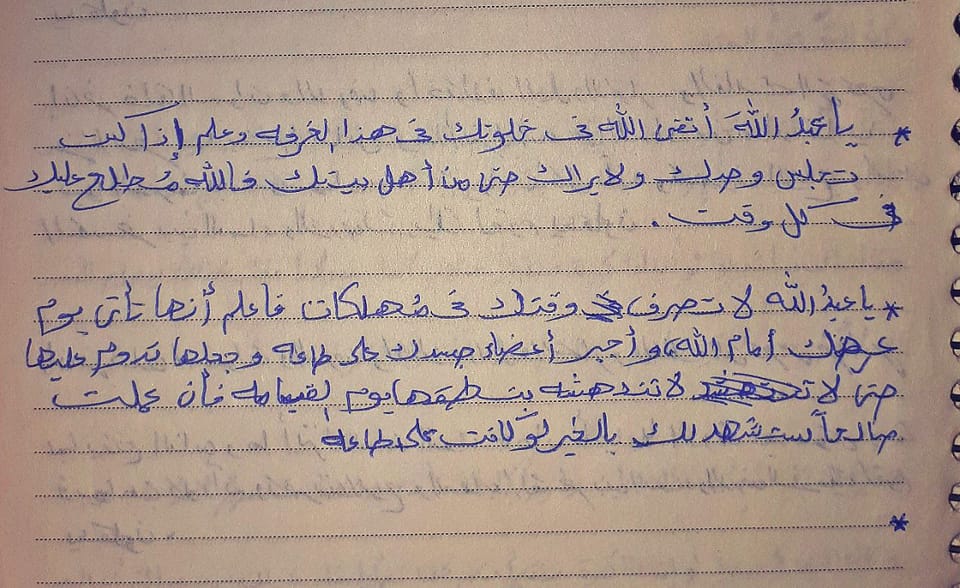 * يا عبدُ اللهَ أتقى اللهَ فى خلوتك فى هذا الغرفه وعلم إذا كنت
تجلس وحدك ولا يراك حتى من أهل بيتك فالله مُطلع عليك
فى كل وقت .
* يا عبدُ الله لا تصرف وقتك فى مُهلكات فاعلم أنها تأتى يوم
عرضك أمام الله، و أجبر أعضاء جسدك على طاعه و جعلها تدوم عليها
حتى لا تندهشه بنطقها يوم لقيامه فأن عملت
صالحاً ستشهد لك بالخير لو كانت على طاعه
*